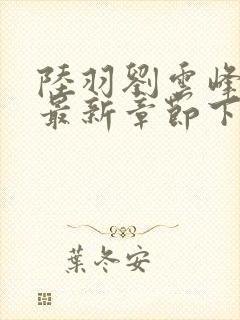 陸羽劉雲峰
最新章節下
葉冬安